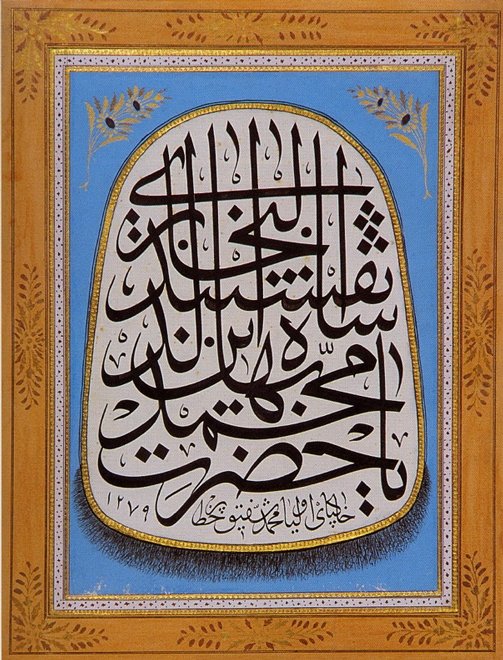 يا حضرت
محمد
بهاء الدين
شاه نقشبند
البخاري
خاكپاى اوليا محمد شفيق
١٢٧٩